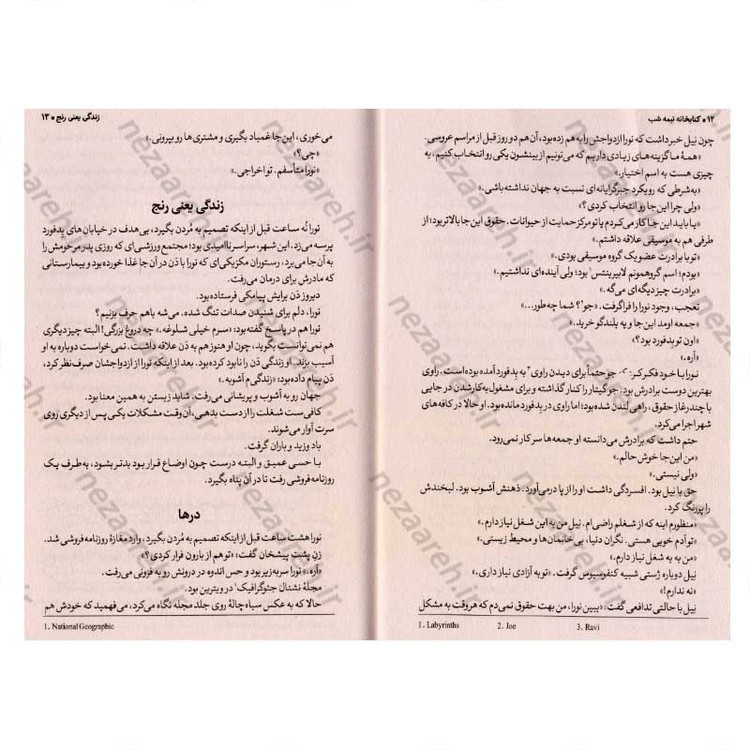 ۱۲ • کتابخانه نیمه شب
چون نیل خبر داشت که نورا ازدواجش را به هم زده بود، آن هم دو روز قبل از مراسم عروسی.
«همهٔ ما گزینه‌های زیادی داریم که می‌تونیم از بینشون یکی رو انتخاب کنیم. یه
چیزی هست به اسم اختیار.»
«به‌شرطی که رویکرد جبرگرایانه‌ای نسبت به جهان نداشته باشی.»
«ولی چرا این‌جا رو انتخاب کردی؟»
«یا باید این‌جا کار می‌کردم یا تو مرکز حمایت از حیوانات. حقوق این‌جا بالاتر بود؛ از
طرفی هم به موسیقی علاقه داشتم.»
«تو با برادرت عضو یک گروه موسیقی بودی.»
«بودم؛ اسم گروهمونم لابیرینتس¹ بود؛ ولی آینده‌ای نداشتیم.»
«برادرت چیز دیگه‌ای می‌گه.»
تعجب، وجود نورا را فراگرفت. «جو²؟ شما چه‌طور...»
«جمعه اومد این‌جا و یه بلندگو خرید.»
«اون تو بدفورد بود؟»
«آره.»
نورا با خود فکر کرد: که جو حتماً برای دیدن راوی³ به بدفورد آمده بوده است. راوی
بهترین دوست برادرش بود. جو گیتار را کنار گذاشته و برای مشغول به‌کار شدن در جایی
با چندرغاز حقوق، راهی لندن شده بود؛ اما راوی در بدفورد مانده بود. او حالا در کافه‌های
شهر اجرا می‌کرد.
حتم داشت که برادرش می‌دانسته او جمعه‌ها سر کار نمی‌رود.
«من این‌جا خوش حالم.»
«ولی نیستی.»
حق با نیل بود. افسردگی داشت او را از پا درمی‌آورد. ذهنش آشوب بود. لبخندش
را پررنگ کرد.
«منظورم اینه که از شغلم راضی‌ام. نیل من به این شغل نیاز دارم.»
«تو آدم خوبی هستی. نگران دنیا، بی‌خانمان‌ها و محیط زیستی.»
«من به یه شغل نیاز دارم.»
نیل دوباره ژستی شبیه کنفوسیوس گرفت. «تو به آزادی نیاز داری.»
«نه ندارم!»
نیل با حالتی تدافعی گفت: «ببین نورا، من بهت حقوق نمی‌دم که هر وقت به مشکل
1. Labyrinths 2. Joe 3. Ravi
زندگی یعنی رنج • ۱۳
می‌خوری، این‌جا غمباد بگیری و مشتری‌ها رو بپرونی.»
«چی؟»
«نورا متأسفم. تو اخراجی.»
زندگی یعنی رنج
نورا نُه ساعت قبل از اینکه تصمیم به مُردن بگیرد، بی‌هدف در خیابان‌های بدفورد
پرسه می‌زد. این شهر، سراسر ناامیدی بود؛ مجتمع ورزشی‌ای که روزی پدر مرحومش را
به آن‌جا می‌برد، رستوران مکزیکی‌ای که نورا با دَن در آن‌جا غذا خورده بود و بیمارستانی
که مادرش برای درمان می‌رفت.
دیروز دَن برایش پیامکی فرستاده بود.
نورا، دلم برای شنیدن صدات تنگ شده. می‌شه باهم حرف بزنیم؟
نورا هم در پاسخ گفته بود: «سرم خیلی شلوغه.» چه دروغ بزرگی! البته چیز دیگری
هم نمی‌توانست بگوید، چون او هنوز هم به دَن علاقه داشت. نمی‌خواست دوباره به او
آسیب بزند. او زندگی دَن را نابود کرده بود. بعد از اینکه نورا از ازدواجشان صرف‌نظر کرد،
دَن پیام داده بود: «زندگی‌م آشوبه.»
جهان رو به آشوب و پریشانی می‌رفت. شاید زیستن به همین معنا بود.
کافی‌ست شغلت را از دست بدهی، آن وقت مشکلات یکی پس از دیگری روی
سرت آوار می‌شوند.
باد وزید و باران گرفت.
با حسی عمیق و البته درست چون اوضاع قرار بود بدتر بشود، به‌طرف یک
روزنامه‌فروشی رفت تا در آن پناه بگیرد.
درها
نورا هشت ساعت قبل از اینکه تصمیم به مُردن بگیرد، وارد مغازهٔ روزنامه‌فروشی شد.
زن پشت پیشخان گفت: «تو هم از بارون فرار کردی؟»
«آره.» نورا سر به زیر بود و حس اندوه در درونش رو به فزونی می‌رفت.
مجلهٔ نشنال جئوگرافیک¹ در ویترین بود.
حالا که به عکس سیاه‌چالهٔ روی جلد مجله نگاه می‌کرد، می‌فهمید که خودش هم
1. National Geographic
nezaareh.ir